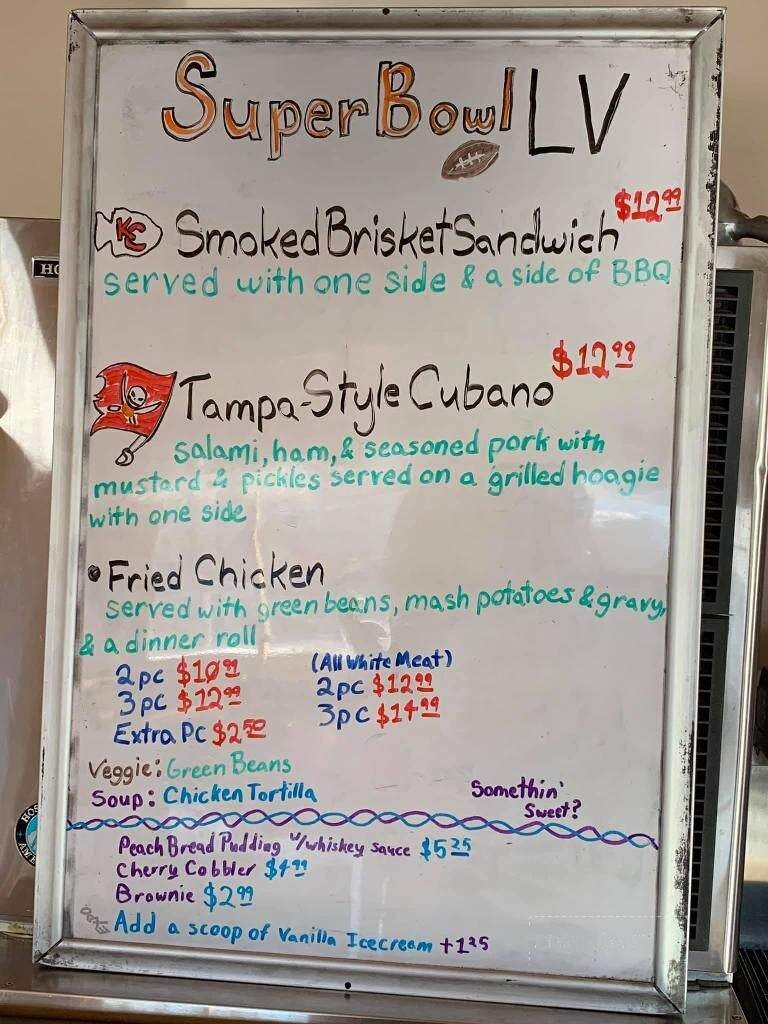 Super Bowl LV
KC Smoked Brisket Sandwich $12.99
served with one side & a side of BBQ
Tampa-Style Cubano $12.99
salami, ham, & seasoned pork with
mustard & pickles served on a grilled hoagie
with one side
• Fried Chicken
served with green beans, mash potatoes & gravy,
& a dinner roll
2pc $10.99 (All White Meat)
3pc $12.99 2pc $12.99
Extra Pc $2.50 3pc $14.99
Veggie: Green Beans
Soup: Chicken Tortilla
Somethin'
Sweet?
Peach Bread Pudding w/whiskey sauce $5.25
Cherry Cobbler $4.99
Brownie $2.99
Add a scoop of Vanilla Icecream +1.25
EXPO
HO